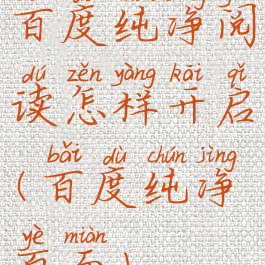 百度纯净阅
dú zěn yàng kāi qǐ
读怎样开启
bǎi dù chún jìng
(百度纯净
yè miàn
页面)